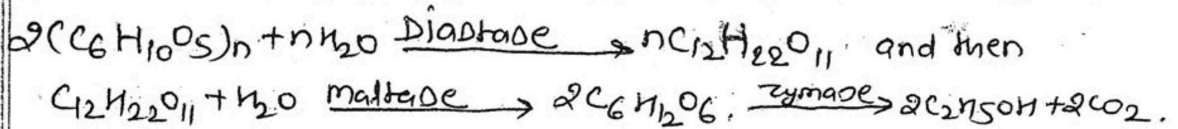 2(C6H10O5)n + nH2O Diastase → nC12H22O11. and then
C12H22O11 + H2O maltase → 2C6H12O6. zymase → 2C2H5OH + 2CO2.